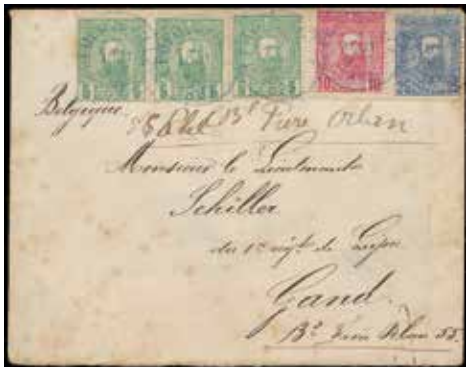 5 5 5 10 10
Belgique
Bd Frère Orban
Monsieur le Lieutenant
Schiller
du 1er régt de
Gand
Bd Frère Orban 55.